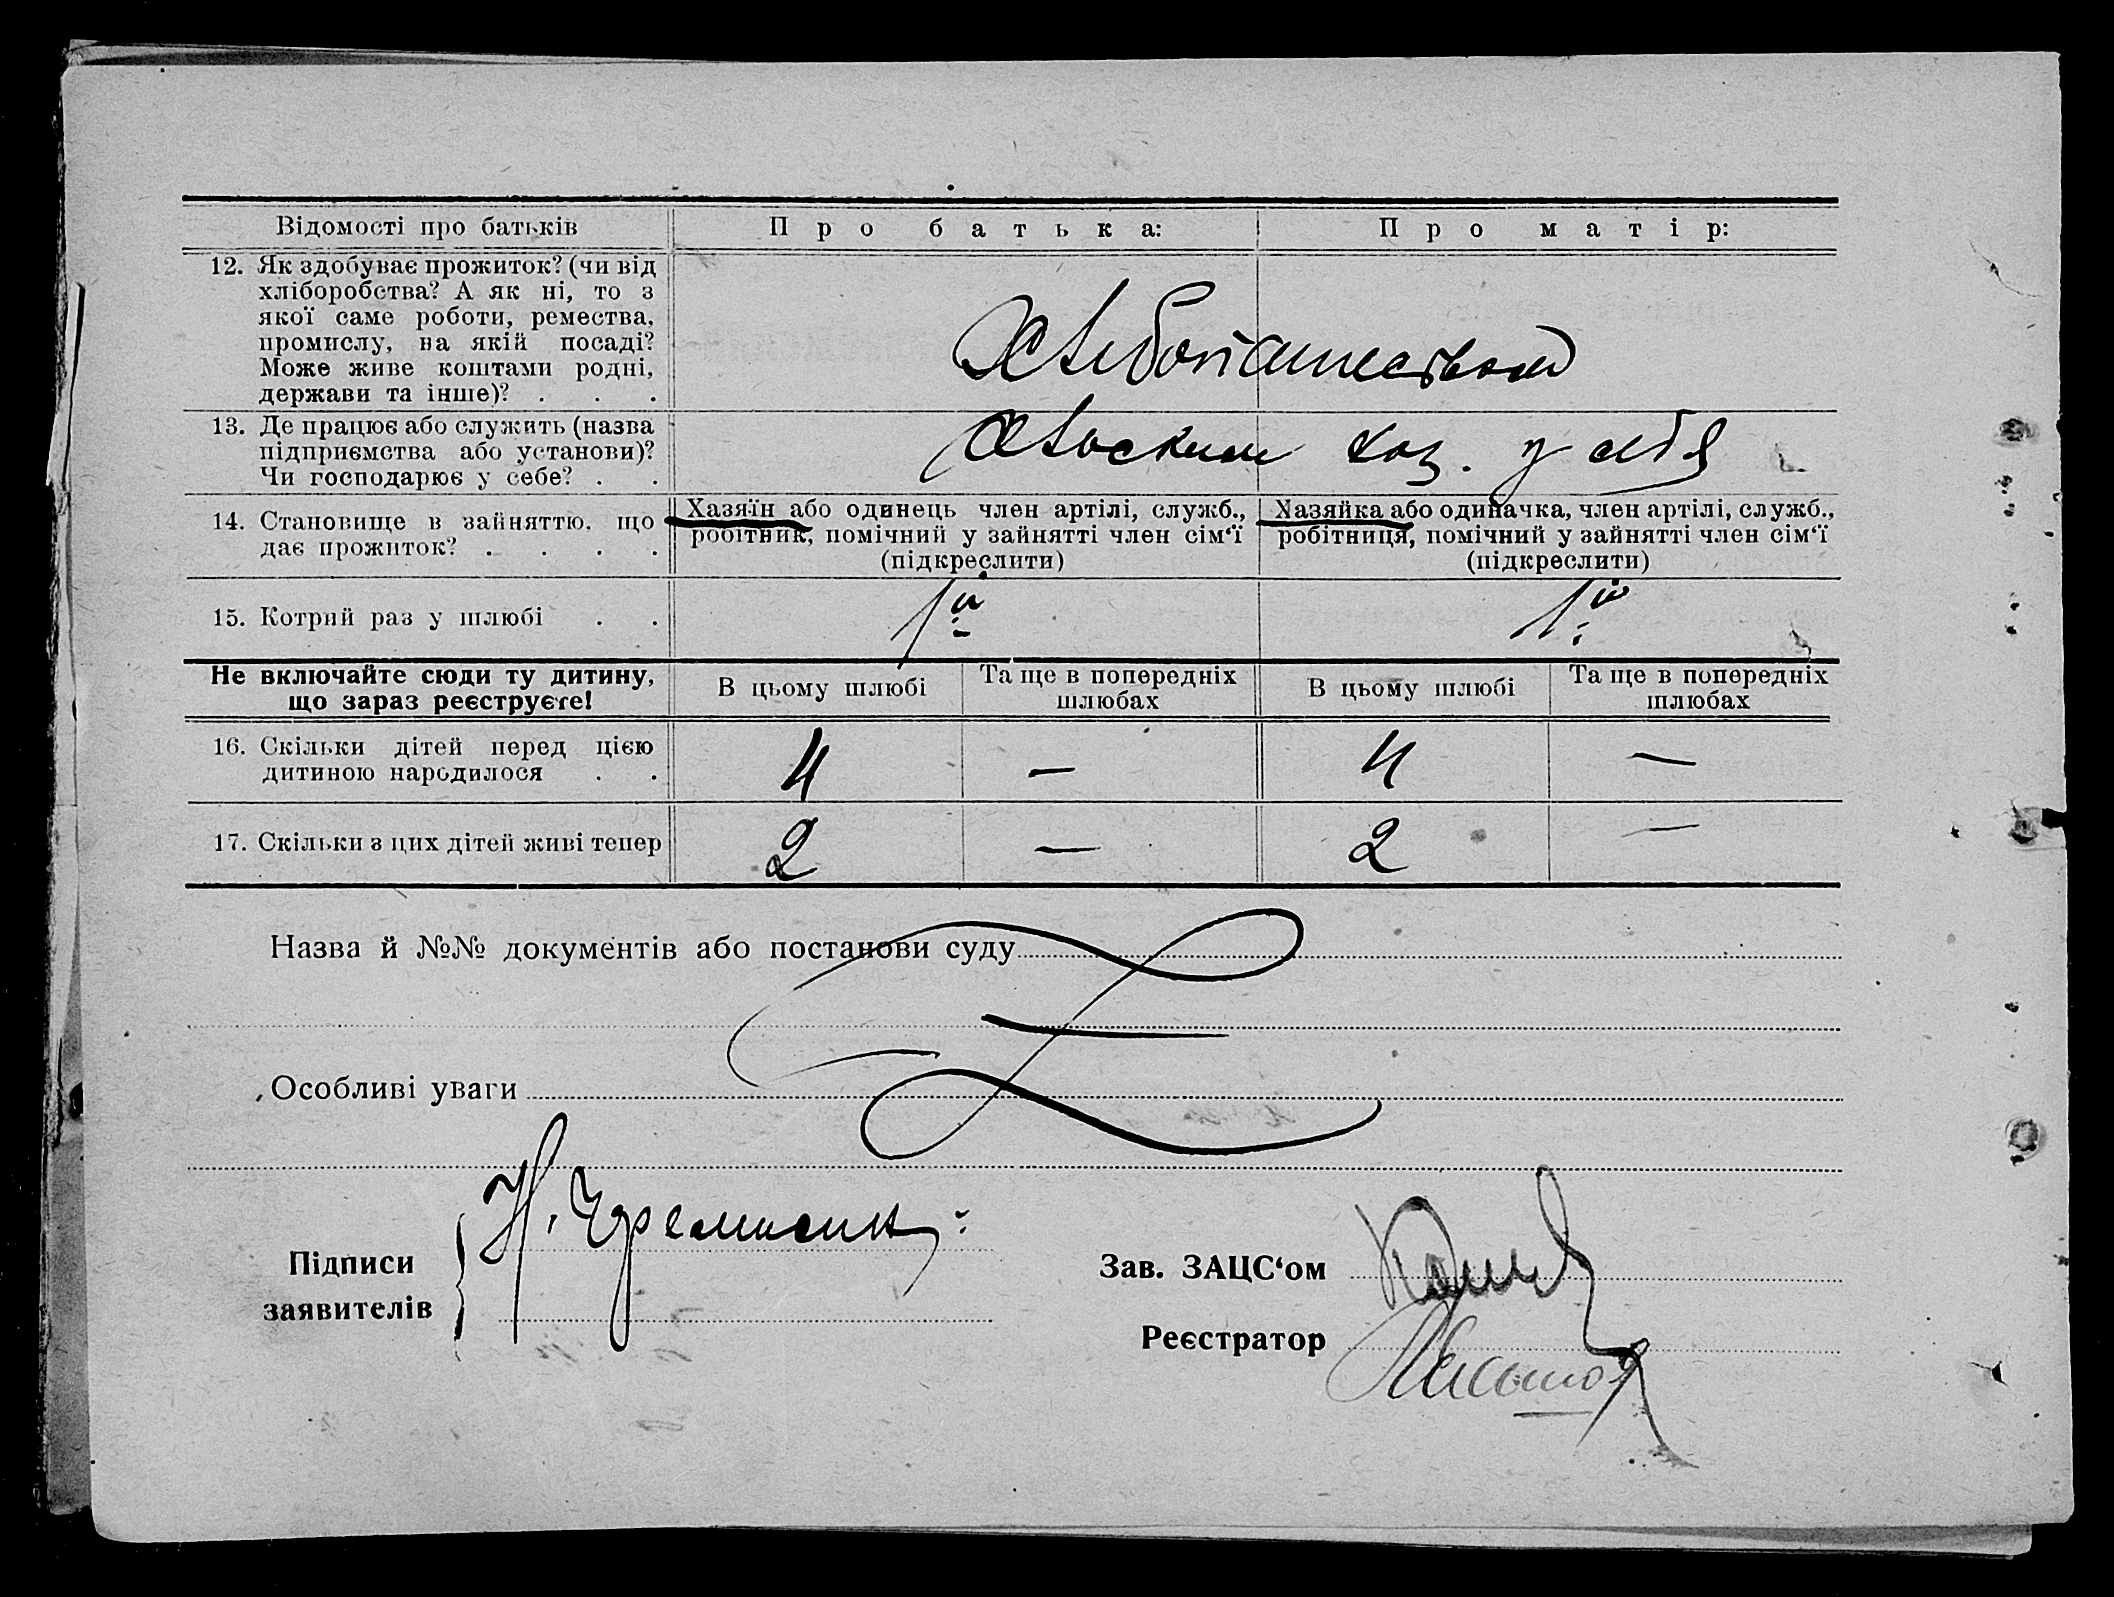 Відомості про батьків
Про батька:
Про матір:
12. Як здобуває прожиток? (чи від
хліборобства? А як ні, то з
якої саме роботи, ремества,
промислу, на якій посаді?
Може живе коштами родні,
держави та інше)? . . .
Хлебопашеством
13. Де працює або служить (назва
підприємства або установи)?
Чи господарює у себе? . .
Хоз. у себя
14. Становище в зайняттю, що
дає прожиток? . . . .
Хазяїн або одинець член артілі, служб.,
робітник, помічний у зайнятті член сім‘ї
(підкреслити)
Хазяйка або одиначка, член артілі, служб.,
робітниця, помічний у зайнятті член сім‘ї
(підкреслити)
15. Котрий раз у шлюбі . .
1й
1й
Не включайте сюди ту дитину,
що зараз реєструєте!
В цьому шлюбі
Та ще в попередніх
шлюбах
В цьому шлюбі
Та ще в попередніх
шлюбах
16. Скільки дітей перед цією
дитиною народилося . .
4
—
4
—
17. Скільки з цих дітей живі тепер
2
—
2
—
Назва й №№ документів або постанови суду
Особливі уваги
Підписи
заявителів
Н. Черемисин
Зав. ЗАЦС‘ом
Реєстратор